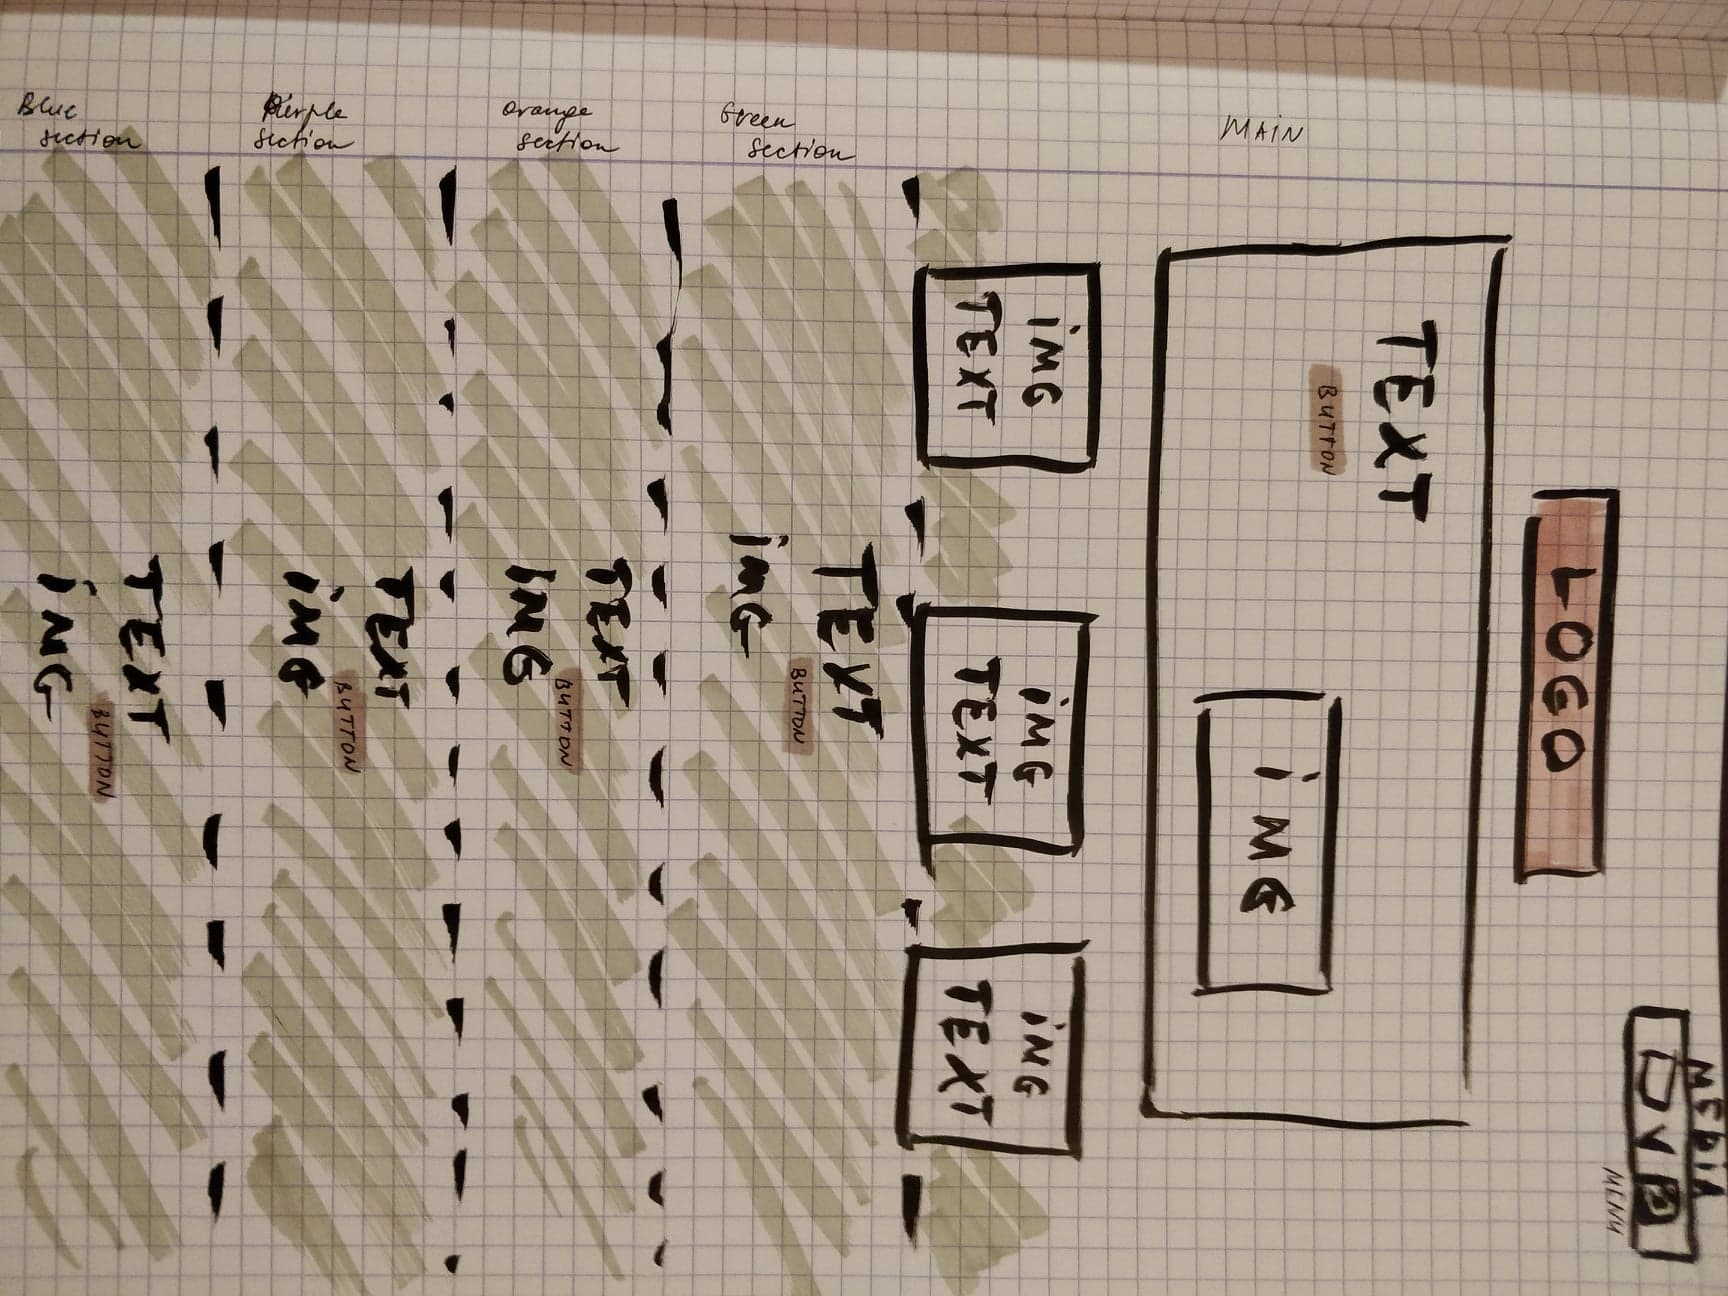 MEDIA
V
MENU
LOGO
TEXT
BUTTON
iMG
MAIN
iMG
TEXT
iMG
TEXT
iMG
TEXT
Green
section
TEXT
BUTTON
iMG
orange
section
TEXT
BUTTON
iMG
Purple
section
TEXT
BUTTON
iMG
Blue
section
TEXT
BUTTON
iMG